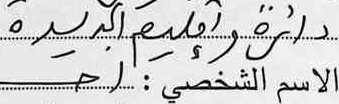 دائرة وإقليم الجديدة
الاسم الشخصي : احـ